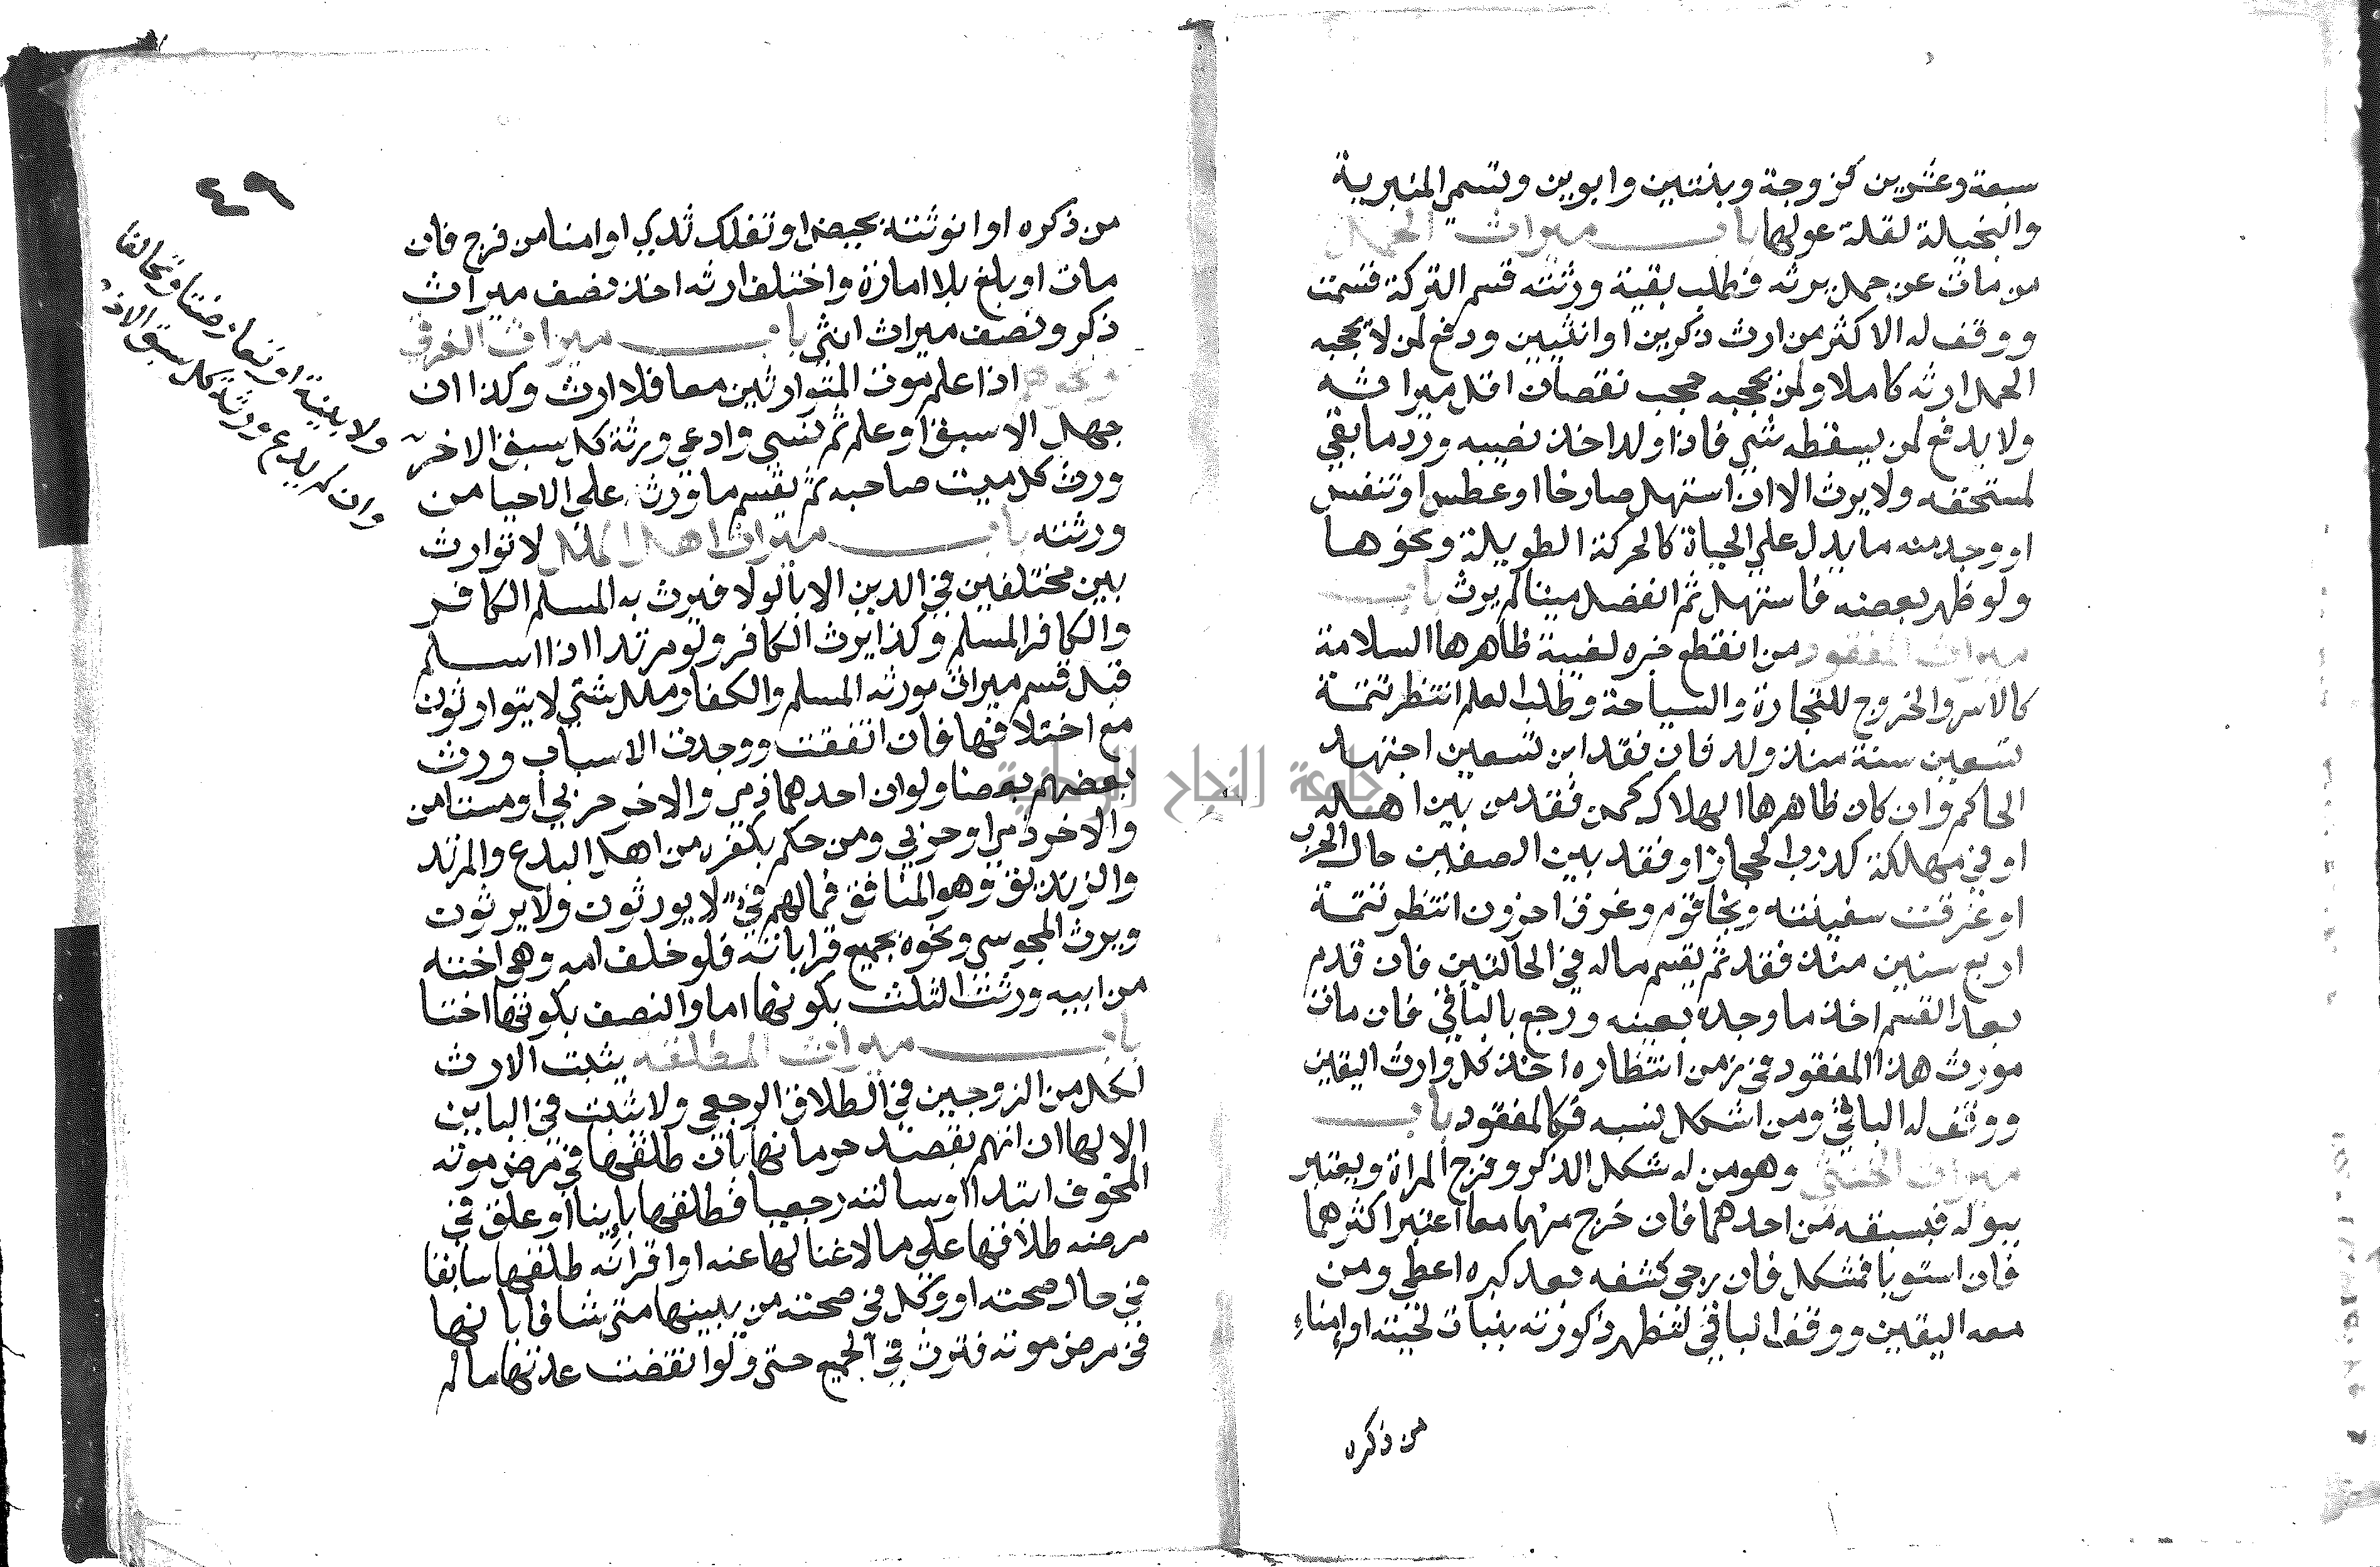 سبعة وعشرين كزوجة وبنتين وابوين وتسمى المنبرية
والبخيلة لقلة عولها باب ميراث الحمل
من مات عن حمل يرثه فطلب بقية ورثته قسم التركة قسمت
ووقف له الاكثر من ارث ذكرين او انثيين ودفع لمن لا يحجبه
الحمل ارثه كاملا ولمن يحجبه حجب نقصان اقل ميراثه
ولا يدفع لمن يسقطه شي فاذا ولد اخذ نصيبه ورد ما بقي
لمستحقه ولا يرث الا ان استهل صارخا او عطس او تنفس
او وجد منه ما يدل علي الحياة كالحركة الطويلة ونحوها
ولو ظهر بعضه فاستهل ثم انفصل ميتا لم يرث باب
ميراث المفقود من انقطع خبره لغيبة ظاهرها السلامة
كالاسر والخروج للتجارة والسياحة وطلب العلم انتظر تتمة
تسعين سنة منذ ولد فان فقد ابن تسعين اجتهد
الحاكم وان كان ظاهرها الهلاك كمن فقد من بين اهله
او في مهلكة كدرب الحجاز او فقد بين الصفين حال الحرب
او غرقت سفينته ونجا قوم وغرق اخرون انتظر تتمة
اربع سنين منذ فقد ثم يقسم ماله في الحالتين فان قدم
بعد القسم اخذ ما وجده بعينه ورجع بالباقي فان مات
مورث هذا المفقود في زمن انتظاره اخذ كل وارث اليقين
ووقف له الباقي ومن اشكل نسبه فكالمفقود باب
ميراث الخنثي وهو من له شكل الذكر وفرج المراة ويعتبر
ببوله فبسبقه من احدهما فان خرج منهما معا اعتبر اكثرهما
فان استويا فمشكل فان رجي كشفه بعد كبره اعطي ومن
معه اليقين ووقف الباقي لتظهر ذكورته بنبات لحيته او إمناءِ
من ذكره
٤٩
من ذكره او انوثته بحيض او تفلك ثدي او امنا من فرج فان
مات او بلغ بلا امارة واختلف ارثه اخذ نصف ميراث
ذكر ونصف ميراث انثي باب ميراث الغرقي
اذا علم موت المتوارثين معا فلا ارث وكذا ان
جهل الاسبق او علم ثم نسي وادعي ورثة كل سبق الاخر
ورث كل ميت صاحبه ثم يقسم ما ورث علي الاحيا من
ورثته باب ميراث اهل الملل لا توارث
بين مختلفين في الدين الا بالولا فيرث به المسلم الكافر
والكافر المسلم وكذا يرث الكافر ولو مرتدا اذا اسلم
قبل قسم ميراث مورثه المسلم والكفار ملل شتي لا يتوارثون
مع اختلافها فان اتفقت ووجدت الاسباب ورث
بعضهم بعضا ولو ان احدهما ذمي والاخر حربي او مستامن
والاخر ذمي او حربي ومن حكم بكفره من اهل البدع والمرتد
والزنديق وهو المنافق فمالهم في لا يورثون ولا يرثون
ويرث المجوسي ونحوه بجميع قراباته فلو خلف امه وهي اخته
من ابيه ورثت الثلث بكونها اما والنصف بكونها اختا
باب ميراث المطلقه يثبت الارث
لكل من الزوجين في الطلاق الرجعي ولا يثبت في الباين
الا لها ان اتهم بقصد حرمانها بان طلقها في مرض موته
المخوف ابتدا او سالته رجعيا فطلقها باينا او علق في
مرضه طلاقها علي ما لا غنا لها عنه او اقر انه طلقها سابقا
في حال صحته او وكل في صحته من يبينها متي شا فابانها
في مرض موته فترث في الجميع حتي ولو انقضت عدتها ما لم
ولا بينة او تعارضتا وتحالفا
وان لم يدع ورثة كل سبق الاخر
جامعة النجاح الوطنية